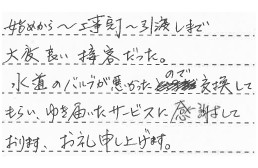 始めから～工事完～引渡しまで
大変良い接客だった。
水道のバルブが悪かったので交換して
もらい、ゆき届いたサービスに感謝して
おります、お礼申し上げます。